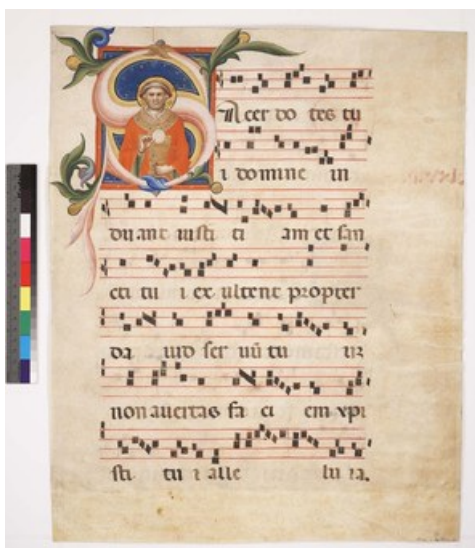 SAcer do tes tu
i domine in
du ant iusti ti am et san
cti tu i ex ultent propter
da uid ser uū tu uz
non auertas fa ci em xpi
sti tu i alle lu ia.